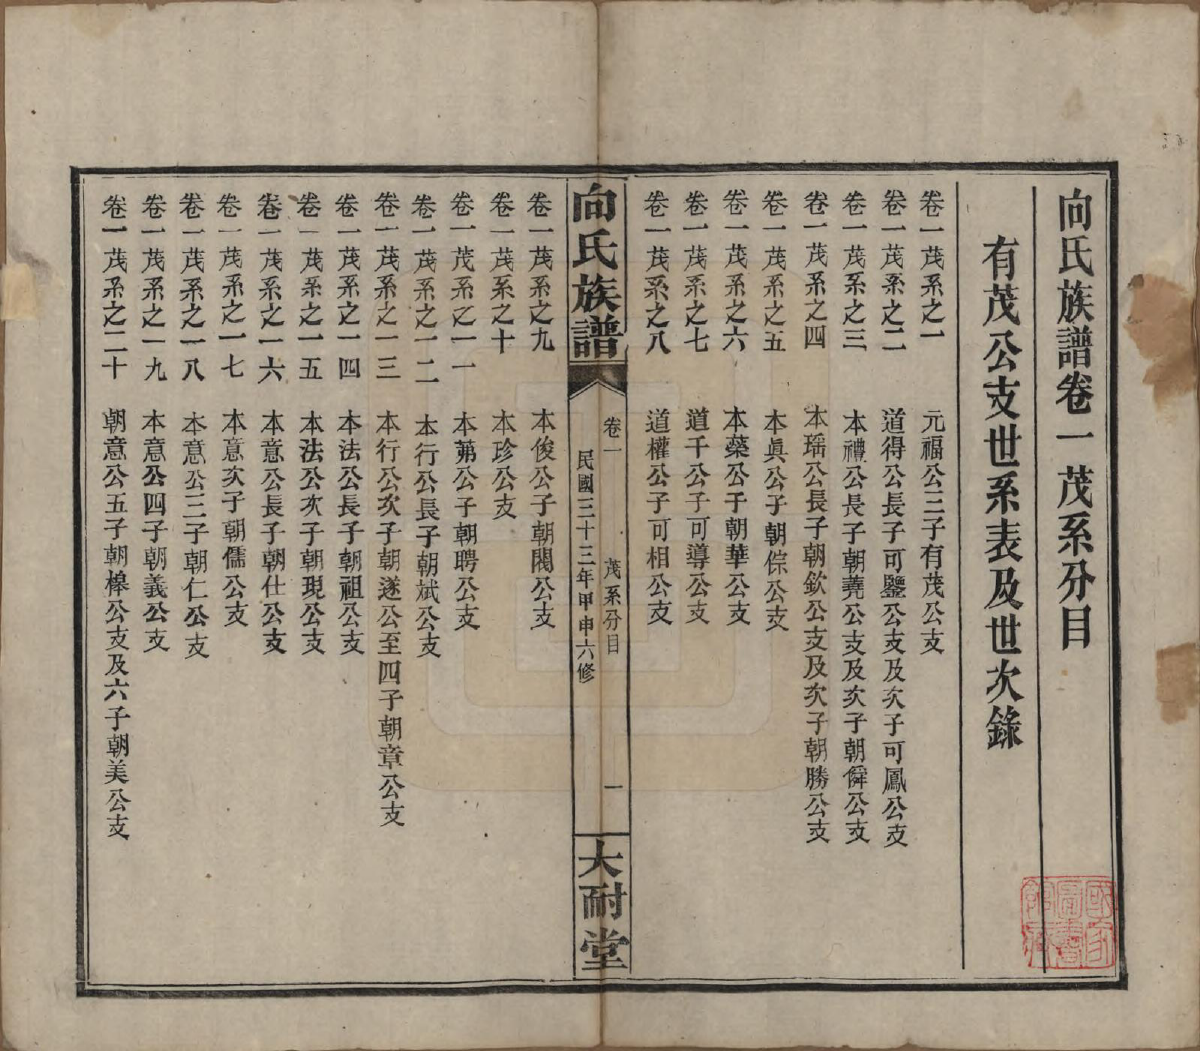 向氏族譜卷一茂系分目
有茂公支世系表及世次錄
卷一茂系之一 元福公三子有茂公支
卷一茂系之二 道得公長子可鑒公支及次子可鳳公支
卷一茂系之三 本禮公長子朝蕘公支及次子朝舜公支
卷一茂系之四 本瑶公長子朝欽公支及次子朝勝公支
卷一茂系之五 本眞公子朝倧公支
卷一茂系之六 本藥公子朝華公支
卷一茂系之七 道千公子可導公支
卷一茂系之八 道權公子可相公支
向氏族譜 卷一 茂系分目 一 大耐堂
民國三十三年甲申六修
卷一茂系之九 本俊公子朝閥公支
卷一茂系之十 本珍公支
卷一茂系之一一 本第公子朝聘公支
卷一茂系之一二 本行公長子朝斌公支
卷一茂系之一三 本行公次子朝遂公至四子朝章公支
卷一茂系之一四 本法公長子朝祖公支
卷一茂系之一五 本法公次子朝現公支
卷一茂系之一六 本意公長子朝仕公支
卷一茂系之一七 本意次子朝儒公支
卷一茂系之一八 本意公三子朝仁公支
卷一茂系之一九 本意公四子朝義公支
卷一茂系之二十 朝意公五子朝榜公支及六子朝美公支
國家圖書館藏